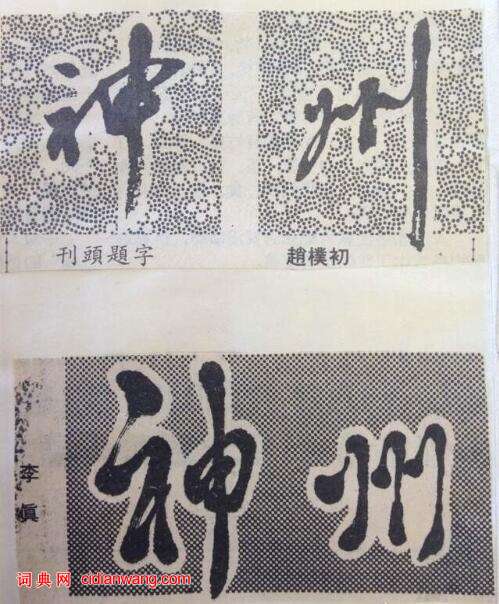 神州
刊頭題字 趙樸初
神州
李眞
词典网 cidianwang.com